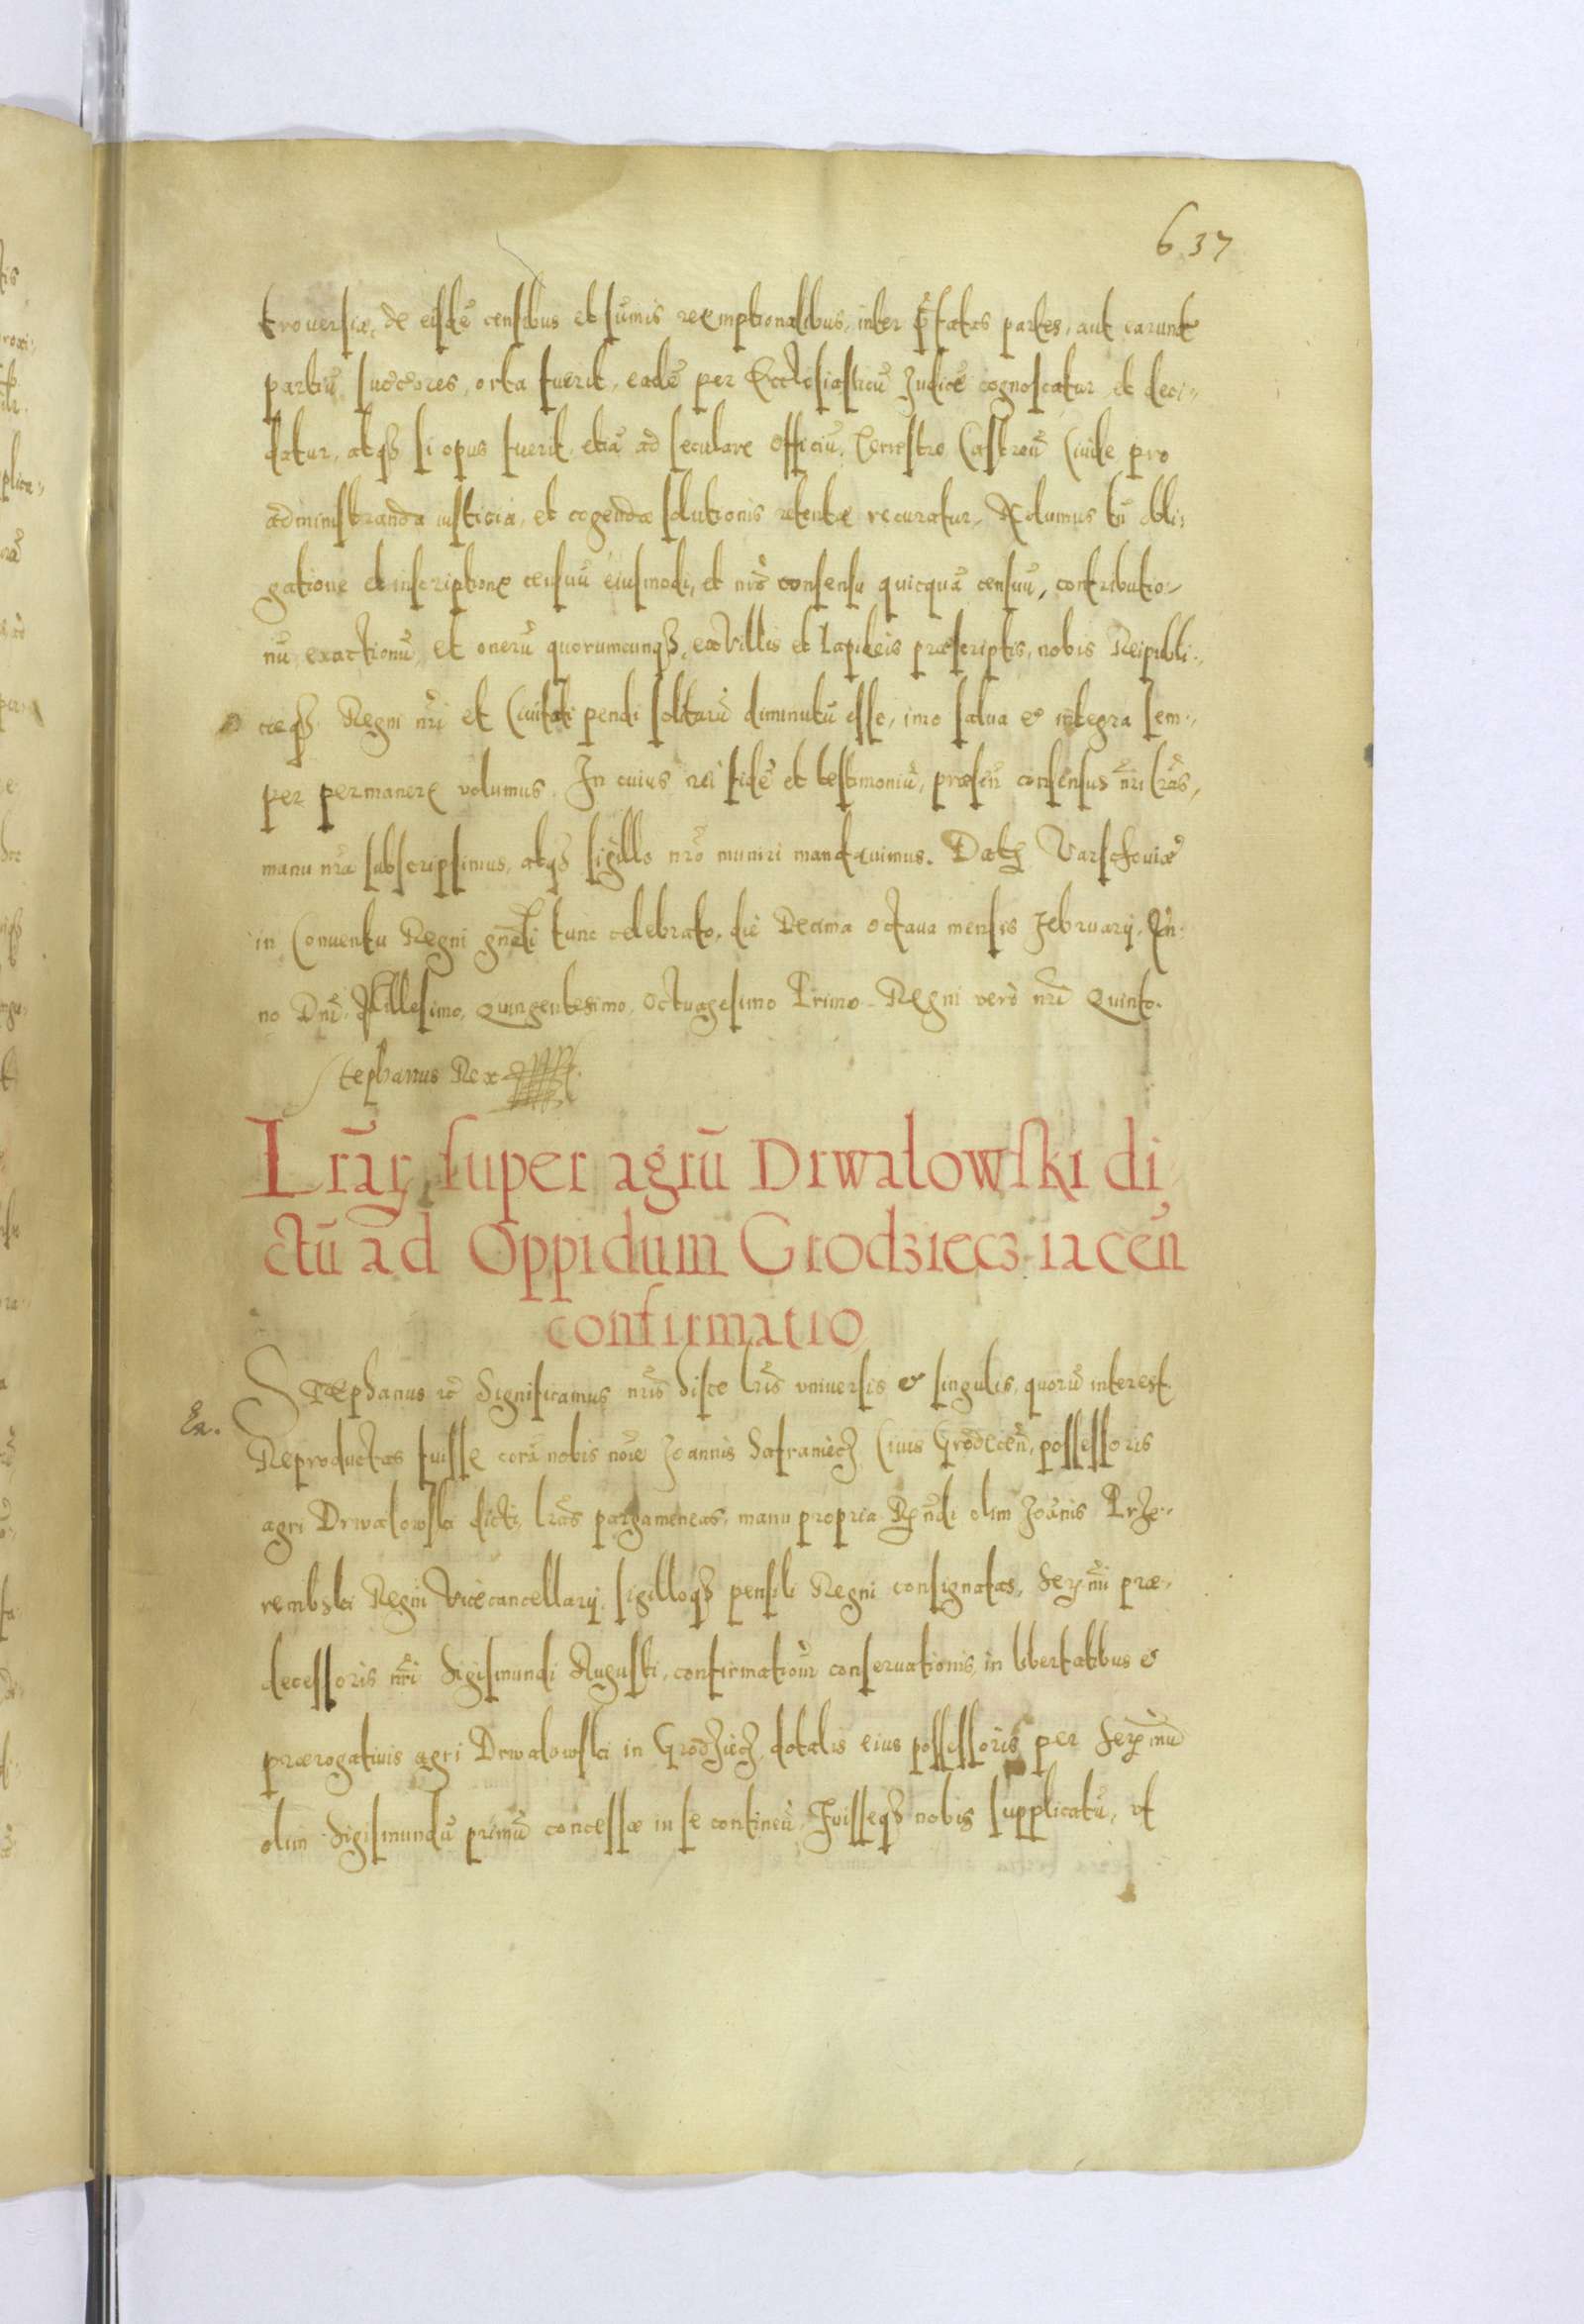 637
troversia, de eisdē censibus et sumis reemptionalibus, inter p̄fatas partes, aut earundē
partiū succōres, orta fuerit, eadē per Ecclesiasticū Iudicē cognoscatur et deci-
datur, atqȝ si opus fuerit, etiā ad seculare officiū, terrestre Castreñ Ciuile pro
administranda iusticia, et cogenda solutionis retentæ recuratur, Nolumus tn̄ obli-
gatione et inscriptione censuū eiusmodi, et nr̄o consensu quicquā censuū, contributio-
nū exactionū et onerū quorumcunqȝ, ex Villis et Lapideis præscriptis, nobis Reipubli-
cæqȝ Regni nr̄i et Ciuitati pendi solitarū diminutū esse, imo salua et integra sem-
per permanere volumus. In cuius rei fidē et testimoniū, præsen̄ consensus nr̄i lr̄as,
manu nr̄a subscripsimus, atqȝ sigillo nr̄o muniri mandauimus. Datȝ Varschouiæ
in Conuentu Regni gn̄ali tunc celebrato, die Decima octaua mensis February, An-
no Dnī Millesimo, Quingentesimo, Octuagesimo Primo Regni verò nr̄i Quinto.
Stephanus Rex
Lr̄aꝝ super agrū Drwalowski di
ctū ad Oppidum Grodziecz iaceñ
confirmatio
Ex.
Stæphanus rc̄ Significamus nr̄is hisce lr̄is vniuersis et singulis, quorū interest.
Reproductas fuisse corā nobis noīe Joannis Safraniecz Ciuis Grodeceñ, possessoris
agri Drwalowski dicti, lr̄as pargameneas, manu propria Rn̄di olim Joānis Prze-
rembski Regni Vicecancellary, sigilloqȝ pensili Regni consignatas, Serm̄i præ-
decessoris nr̄i Sigismundi Augusti, confirmationē conseruationis, in libertatibus et
prærogatiuis agri Drwalowski in Grodziecz, dotalis eius possessoris per Serm̄ū
olim Sigismundū primū concessæ in se contineñ, Fuisseqȝ nobis supplicatū, vt